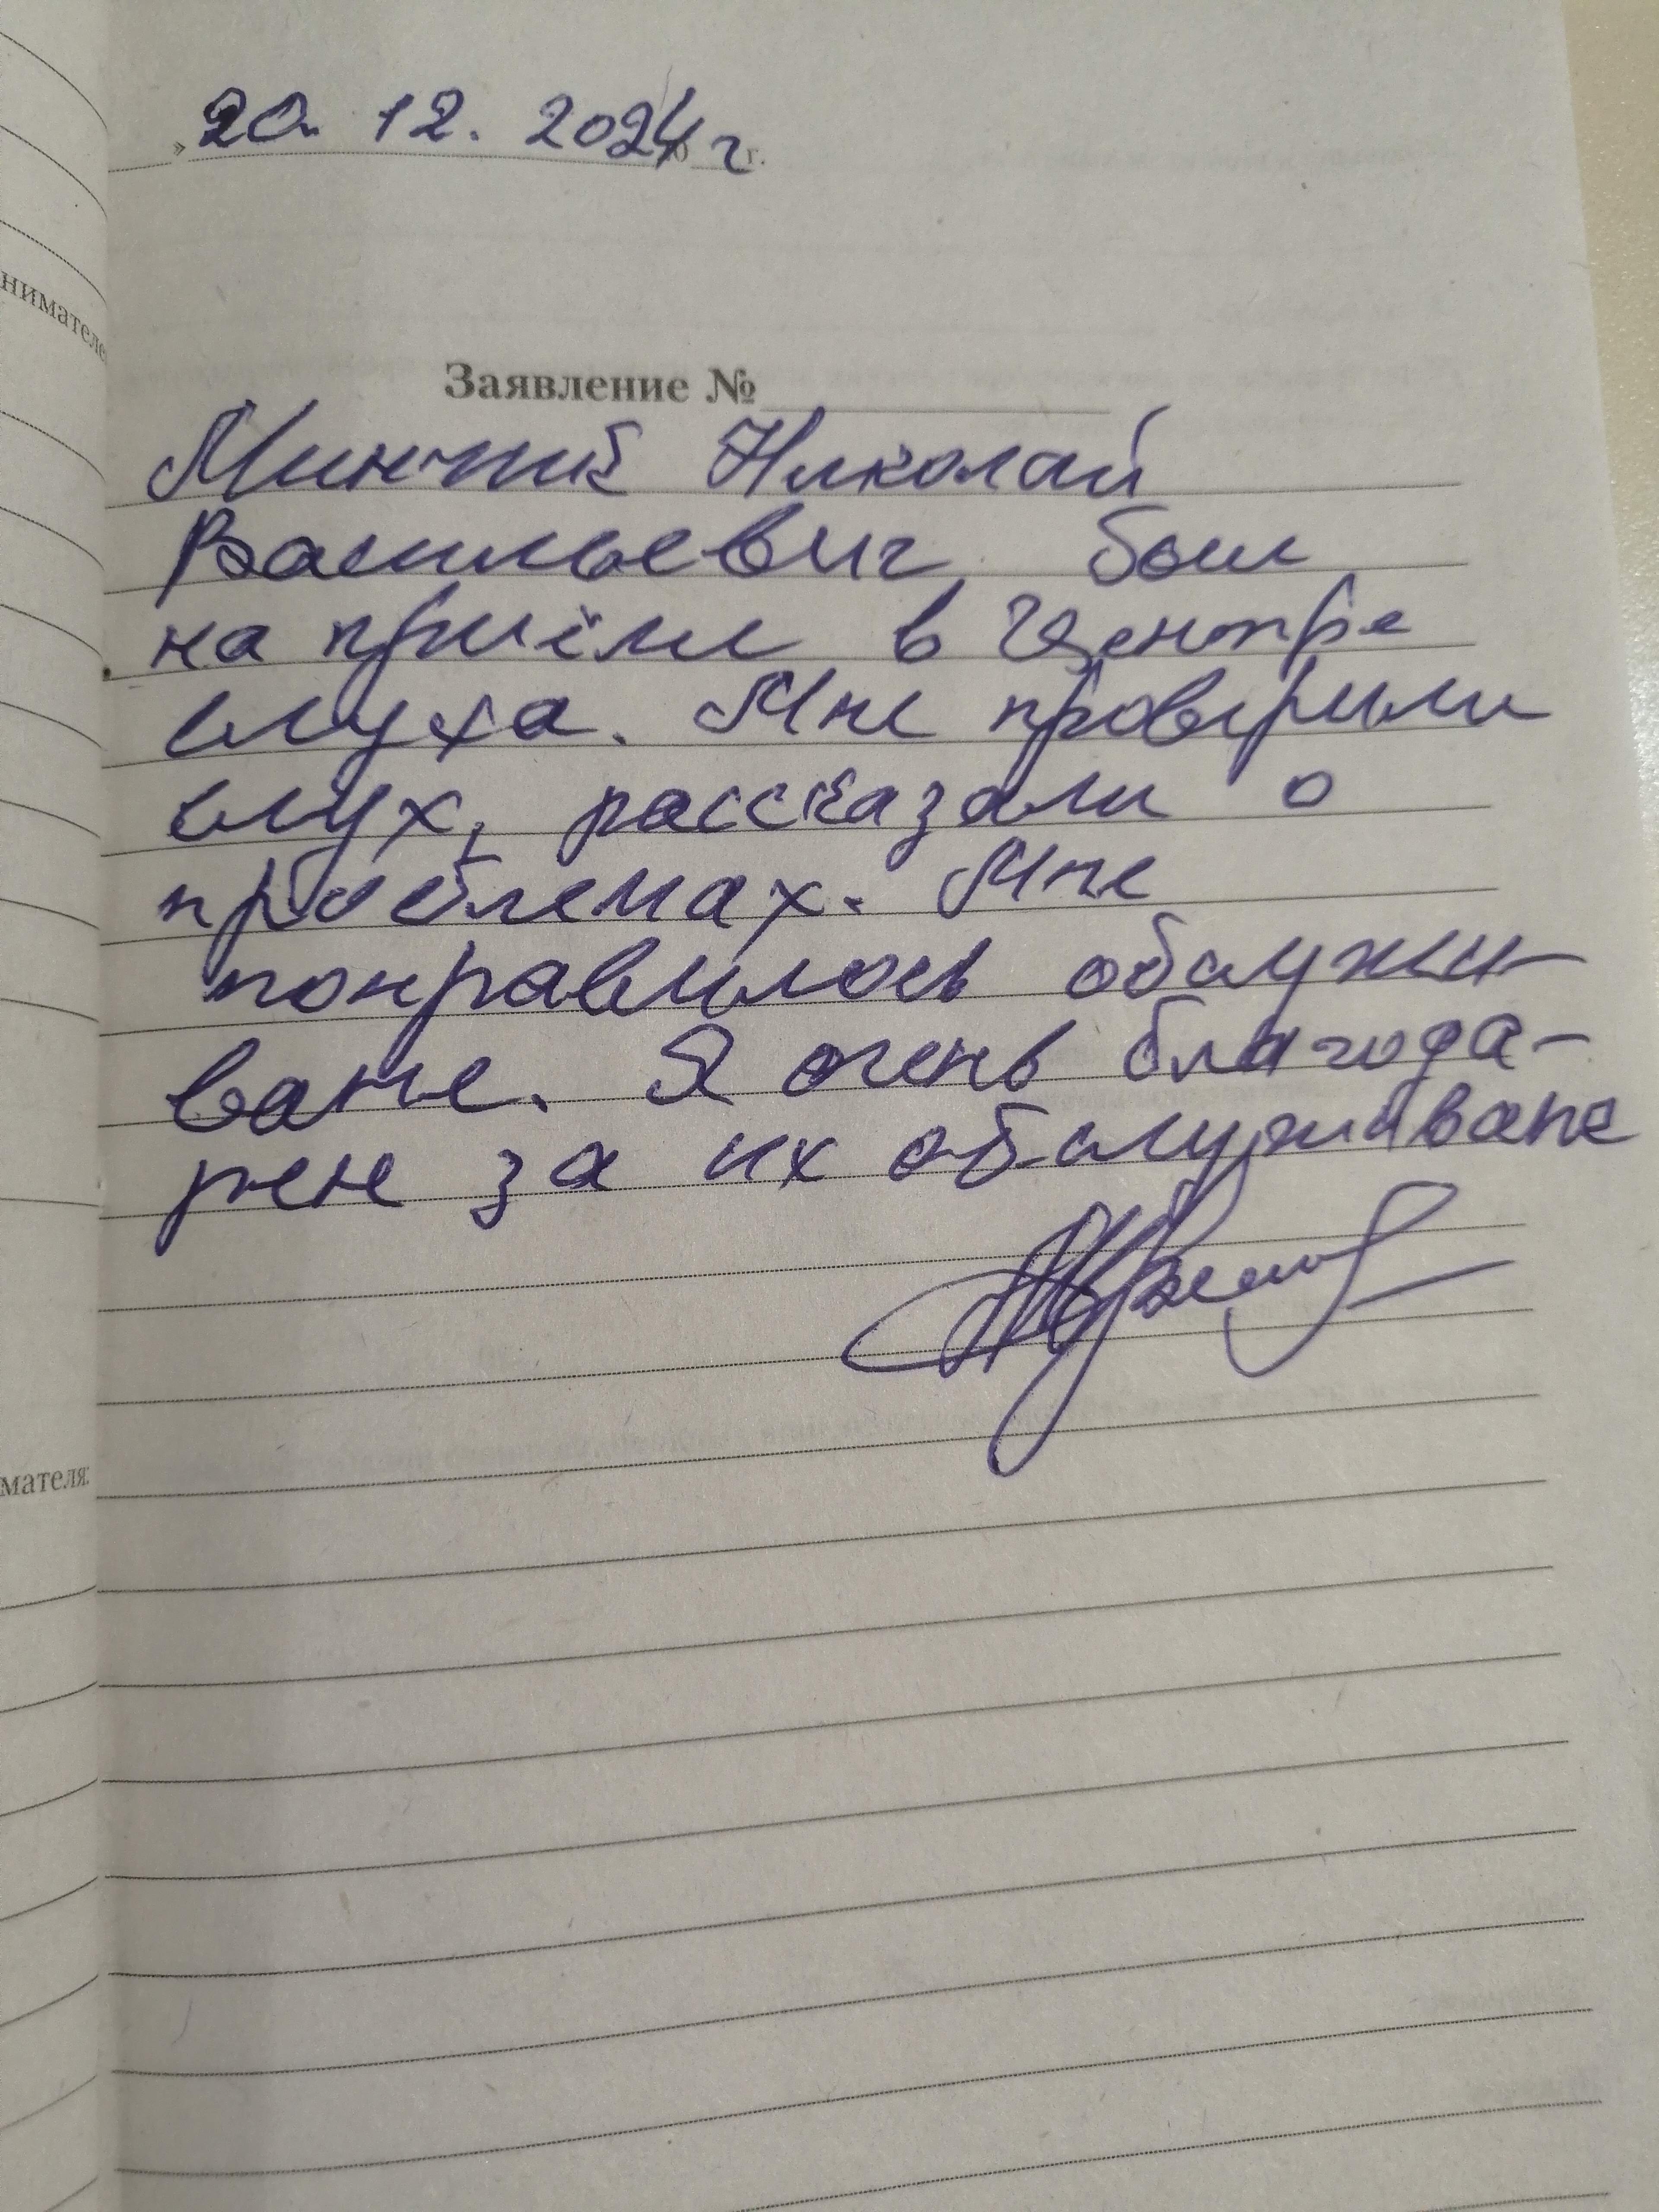 20. 12. 2024 г г.
нимателе
Заявление №
Минчик Николай
Васильевич был
на приёме в Центре
слуха. Мне проверили
слух, рассказали о
проблемах. Мне
понравилось обслужи-
ване. Я очень благода-
рен за их обслуживане
мателя: